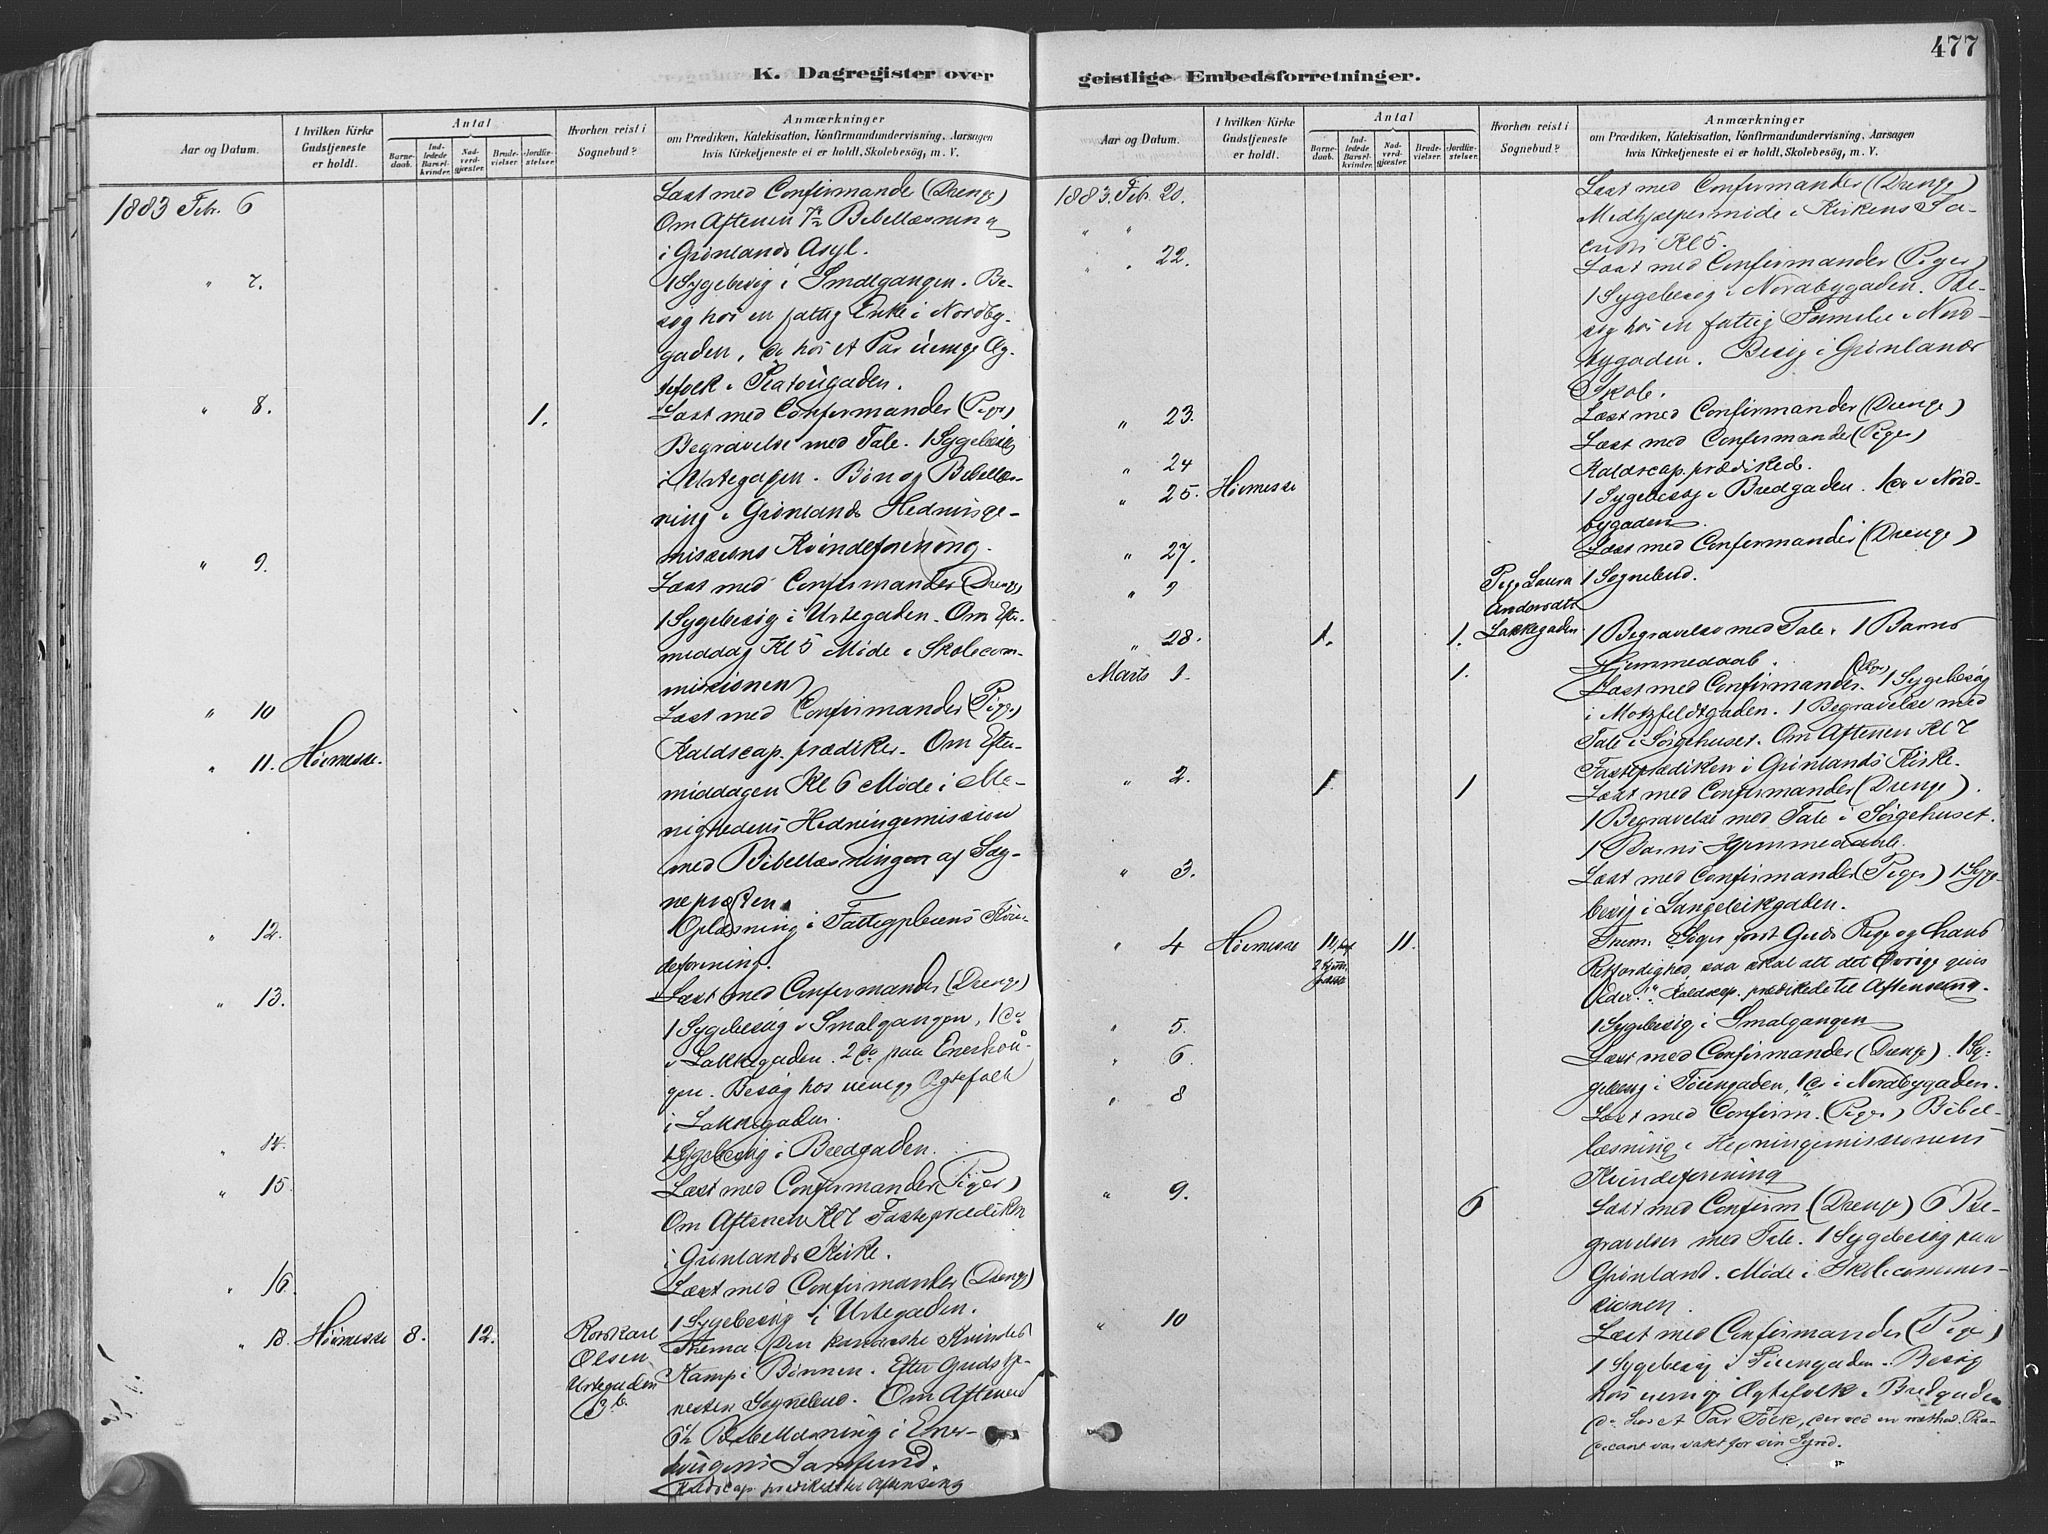 K. Dagregister over
Aar og Datum.
I hvilken Kirke Gudstjeneste er holdt.
Antal
Barnedaab.
Indledede Barselkvinder.
Nadverdgjæster.
Brudevielser.
Jordfæstelser.
Hvorhen reist i Sognebud?
Anmærkninger
om Prædiken, Katekisation, Konfirmandundervisning, Aarsagen
hvis Kirketjeneste ei er holdt, Skolebesøg, m. V.
1883 Febr. 6
Læst med Confirmande (Drenge)
Om Aftenen 7½ Bibellæsning
i Grønlands Asyl.
" 7.
1 Sygebesøg i Smalgangen. Be-
søg hos en fattig Enke i Nordby-
gaden, do hos et Par uenige Æg-
tefolk i Platougaden.
" 8. 1.
Læst med Confirmander (Piger)
Begravelse med Tale. 1 Sygebesøg
i Urtegaden. Bøn og Bibellæs-
ning i Grønlands Hednings-
missions Kvindeforening.
" 9.
Læst med Confirmander (Drenge)
1 Sygebesøg i Urtegaden. Om Efter-
meddag Kl 5 Møde i Skolecom-
missionen
" 10
Læst med Confirmander (Piger)
" 11. Høimesse.
Kaldscap. prædiker. Om Efter-
middagen Kl 6 Møde i Me-
nighedens Hedningemission
med Bibellæsningen af Sog-
nepræsten.
" 12.
Oplæsning i Fattigpleiens Kvin-
deforening.
" 13.
Læst med Confirmander (Drenge)
1 Sygebesøg i Smalgangen, 1 do
i Lakkegaden. 2 do paa Enerhou-
gen. Besøg hos uenige Ægtefolk
i Lakkegaden.
" 14.
1 Sygebesøg i Bredgaden.
" 15.
Læst med Confirmander (Piger)
Om Aftenen Kl 7 Fasteprædiken
i Grønlands Kirke.
" 16.
Læst med Confirmander (Drenge)
1 Sygebesøg i Urtegaden.
" 18. Høimesse 8. 12.
Olsen
Urtegaden
Thema Den kanaæiske Kvindes
Kamp i Bønnen. Efter Gudstje-
nesten Sognebud. Om Aftenen
6½ Bibellæsning i Ener-
hougens Samfund.
Kaldscap. prædikede til Aftensang
geistlige Embedsforretninger.
477
Aar og Datum.
I hvilken Kirke Gudstjeneste er holdt.
Antal
Barnedaab.
Indledede Barselkvinder.
Nadverdgjæster.
Brudevielser.
Jordfæstelser.
Hvorhen reist i Sognebud?
Anmærkninger
om Prædiken, Katekisation, Konfirmandundervisning, Aarsagen
hvis Kirketjeneste ei er holdt, Skolebesøg, m. V.
1883. Febr. 20.
Læst med Confirmander (Drenge)
" "
Medhjælpermøde i Kirkens Sa-
cristi Kl 5.
" " 22.
Læst med Confirmander (Piger)
1 Sygebesøg i Nordbygaden. Be-
søg hos en fattig Familie i Nord-
bygaden. Besøg i Grønlands
Skole.
" 23.
Læst med Confirmander (Drenge)
" 24
Læst med Confirmander (Piger)
" 25. Høimesse
Kaldscap. prædikede.
1 Sygebesøg i Bredgaden. 1 do i Nord-
bygaden.
" 27.
Læst med Confirmander (Drenge)
" "
Pige Laura
Lakkegaden
1 Sognebud.
" 28. 1. 1.
1 Begravelse med Tale. 1 Barns
Hjemmedaab.
Marts 1. 1.
Læst med Confirmander. (Piger) 1 Sygebesøg
i Motzfeldtgaden. 1 Begravelse med
Tale i Sørgehuset. Om Aftenen Kl 7
Fasteprædiken i Grønlands Kirke.
" 2. 1. 1
Læst med Confirmander (Drenge).
1 Begravelse med Tale i Sørgehuset.
1 Barns Hjemmedaab.
" 3.
Læst med Confirmander (Piger) 1 Syge-
besøg i Langeleikgaden.
" 4 Høimesse 11.
Them: "Søger først Guds Rige og hans
Retfærdighed, saa skal alt det Øvrige gives
Eder." Kaldscap. prædikede til Aftensang.
" 5.
1 Sygebesøg i Smalgangen
" 6.
Læst med Confirmander (Drenge). 1 Sy-
gebesøg i Tøiengaden, 1 do i Nordbygaden.
" 8
Læst med Confirm. (Piger) Bibel-
læsning i Hedningemissionens
Kvindeforening
" 9. 6
Læst med Confirm. (Drenge) 6 Be-
gravelser med Tale. 1 Sygebesøg paa
Grønland. Møde i Skolecommis-
sionen.
" 10
Læst med Confirmander (Piger)
1 Sygebesøg i Tøiengaden. Besøg
hos uenige Ægtefolk i Bredgaden
do hos et Par Folk, der ved en
var vakt for sin Synd.